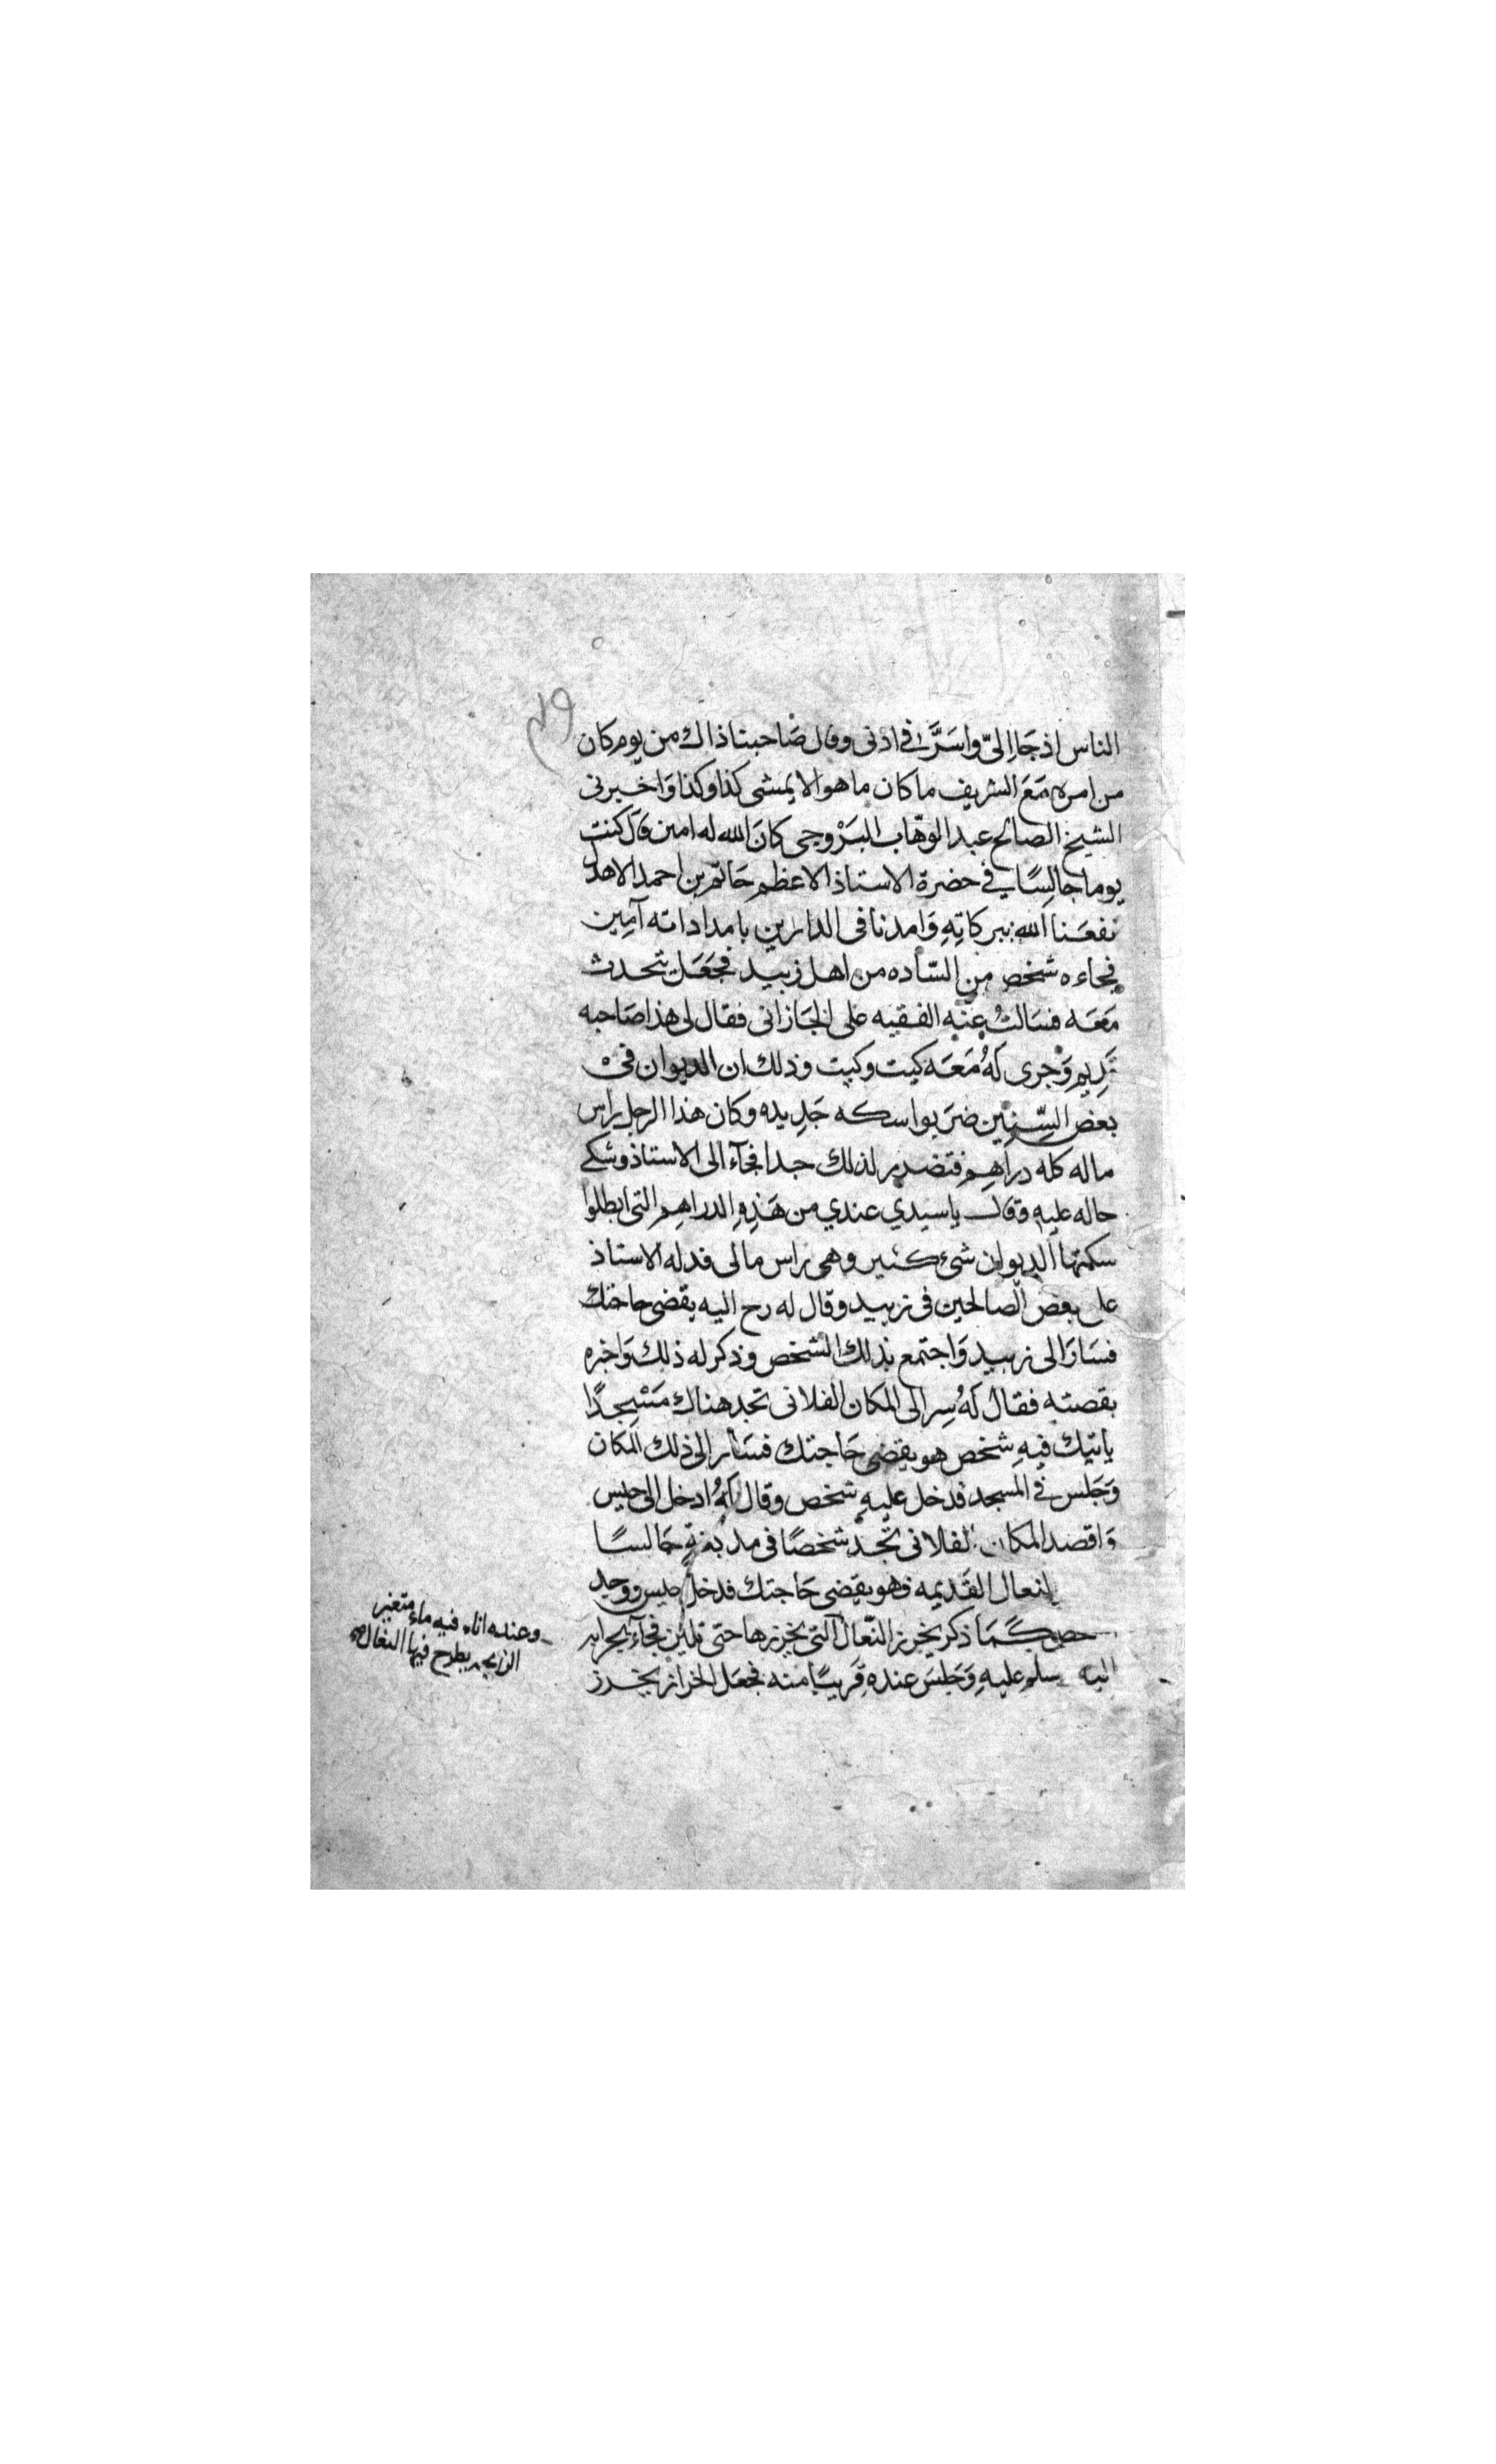 الناس اذ جَاءَ اِلىّ واسَرَّ في اذنى وقال صَاحبنا ذاك من يوم كان
من امره مَعَ الشريف ما كان ما هو الا يمشى كذا وكذا وَاخبرنى
الشيخ الصالح عبد الوهّاب البَرْوجى كانَ الله له امين قال كنت
يوما جالِسًا في حضرة الاستاذ الاعظم حَاتم بن احمد الاهدل
نفعَنا الله ببركاتِهِ وَامدنا فى الدارين بامداداته آمِين
فجاءه شخص من السّاده من اهل زبيد فجَعَل يتحدث
مَعَه فسَالتُ عنّه الفقيه على الجَازانى فقال لى هذا صَاحبه
قدِيم وَجرى لَهُ مَعَه كيت وكيت وذلك ان الديوان فى
بعض السِّنِين ضرَبوا سكه جَدِيده وكان هذا الرجل راس
ماله كله دراهِم فتضرر لذلك جدا فجآء الى الاستاذ وشكى
حاله عليه وقال ياسيدي عندي من هَذِهِ الدراهِم التى ابطلوا
سكتها الديوان شئ كثير وهى راس مالى فدله الاستاذ
على بعض الصالحين فى زبيد وقال له رح اليه يقضى حاجتك
فسَارَ الى زبيد وَاجتمع بذلك الشخص وذكر له ذلك وَاخبره
بقصته فقال لَهُ سِر الى المكان الفلانى تجد هناك مَسْجِدًا
ياتيك فيهِ شخص هو يقضى حَاجتك فسَار الى ذلك المكان
وَجَلس في المسجد فدخل عليهِ شخص وقال لَهُ ادخل الى حيس
وَاقصد المكان الفلانى تجد شخصًا فى مدبغةٍ جَالسًا
النعال القَديمه فهو يقضى حَاجتك فدخل حيس ووجد
كمَا ذكر يخرز النّعال التى يخرزها حتى تلين فجآء
اليه سلم عليهِ وَجَلسَ عنده قَريبًا منه فجعَل الخراز يخرز
وعنده اناء فيه ماء متغير
يطرح فيها النعال صح